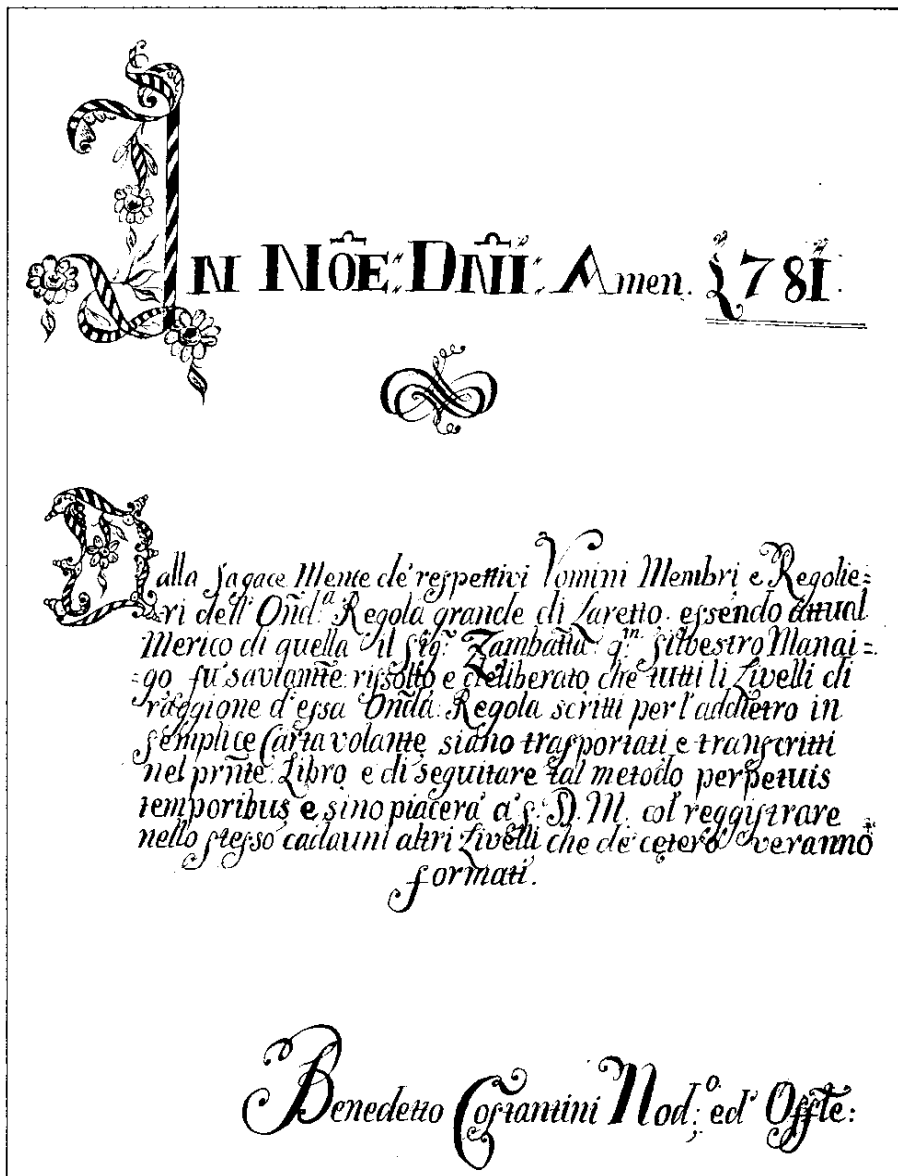 IN NÕE: DÑI: Amen. 1781.
Dalla sagace Mente de' respettivi Vomini Membri e Regolie=
=ri dell' Oñd.ª Regola grande di Laretto. essendo attual
Merico di quella il Sig.r Zambatta q.m Silvestro Manai=
=go fù saviamñte rissolto e deliberato che tutti li Livelli di
raggione d'essa Oñda: Regola scritti per l'addietro in
semplice Carta volante, siano trasportati, e transcritti
nel prñte: Libro, e di seguitare tal metodo perpetuis
temporibus, e sino piacerà a' S: D. M. col' reggistrare
nello stesso cadauni altri Livelli che de' cetero veranno
formati.
Benedetto Costantini Nod.º: ed' Offte: